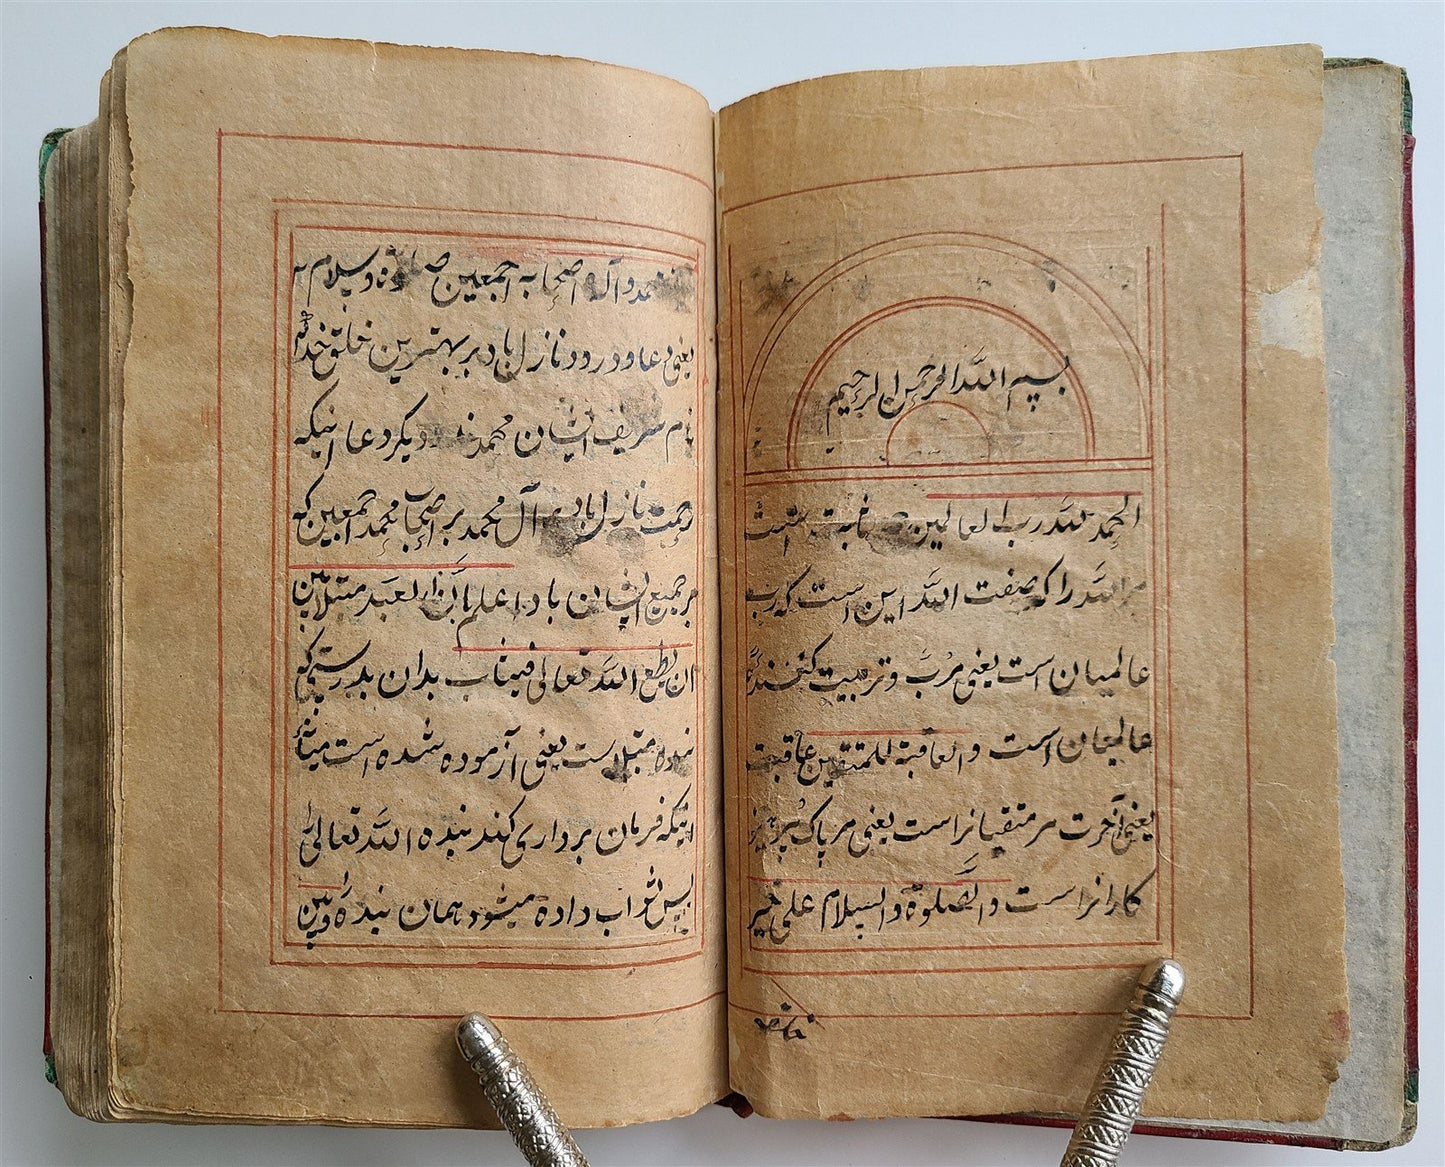 بسم الله الرحمن الرحیم
الحمد لله رب العالمین ثابت است
مر الله را که صفت الله این است که رب
عالمیان است یعنی مرب و تربیت کننده
عالمیان است والعاقبة للمتقین عاقبت
یعنی آخرت مر متقیانراست یعنی مر پاک پرهیز
کارانراست والصلوة والسلام علی خیر
خلقه
محمد وآله اصحابه اجمعین صلوة وسلام
یعنی دعا و درود نازل باد بر بهترین خلق خدا که
نام شریف ایشان محمد دیگر دعا اینکه
رحمت نازل باد بر آل محمد بر اصحاب محمد اجمعین که
بر جمیع ایشان باد اعلم بان العبد مبتلا بین
ان یطع الله تعالی فیثاب بدان بدرستیکه
بنده مبتلاست یعنی آزموده شده است میان
اینکه فرمان برداری کند بنده الله تعالی را
پس ثواب داده میشود همان بنده وبین